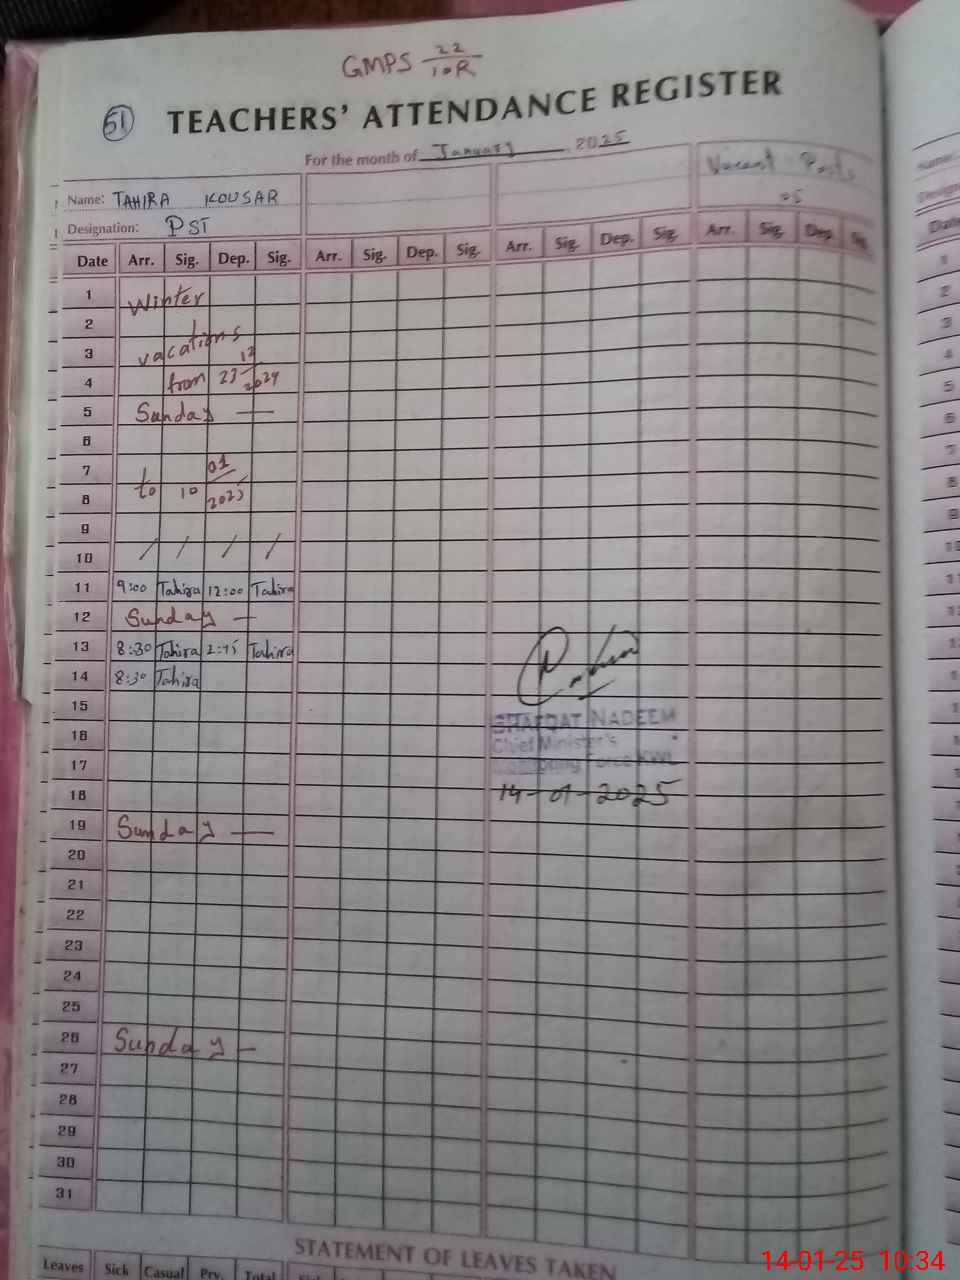 GMPS 22/10R
51
TEACHERS' ATTENDANCE REGISTER
For the month of January, 2025
Vacant Posts
05
Name: TAHIRA KOUSAR
Designation: PST
Date Arr. Sig. Dep. Sig. Arr. Sig. Dep. Sig. Arr. Sig. Dep. Sig. Arr. Sig. Dep. Sig.
1 Winter
2
3 vacations
4 from 23-12-2024
5 Sunday —
6
7
8 to 10 01/2025
9
10 / / / /
11 9:00 Tahira 12:00 Tahira
12 Sunday —
13 8:30 Tahira 2:45 Tahira
14 8:30 Tahira
15
16 NADEEM
Chief Minister's
17 Monitoring Force KWL
18 14-01-2025
19 Sunday —
20
21
22
23
24
25
26 Sunday —
27
28
29
30
31
STATEMENT OF LEAVES TAKEN
Leaves Sick Casual Prv. Total
14-01-25 10:34